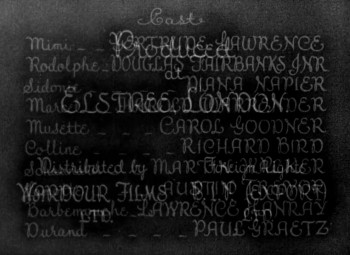 Cast
Mimi _ _ GERTRUDE LAWRENCE
Produced
Rodolphe _ DOUGLAS FAIRBANKS JNR
at
Sidonie DIANA NAPIER
ELSTREE, LONDON
Musette _ _ _ CAROL GOODNER
Colline _ _ _ RICHARD BIRD
Distributed by Foreign Rights
WARDOUR FILMS B.I.P. (EXPORT)
LTD. LTD.
Barbemuche LAWRENCE HANRAY
Durand _ _ _ PAUL GRAETZ